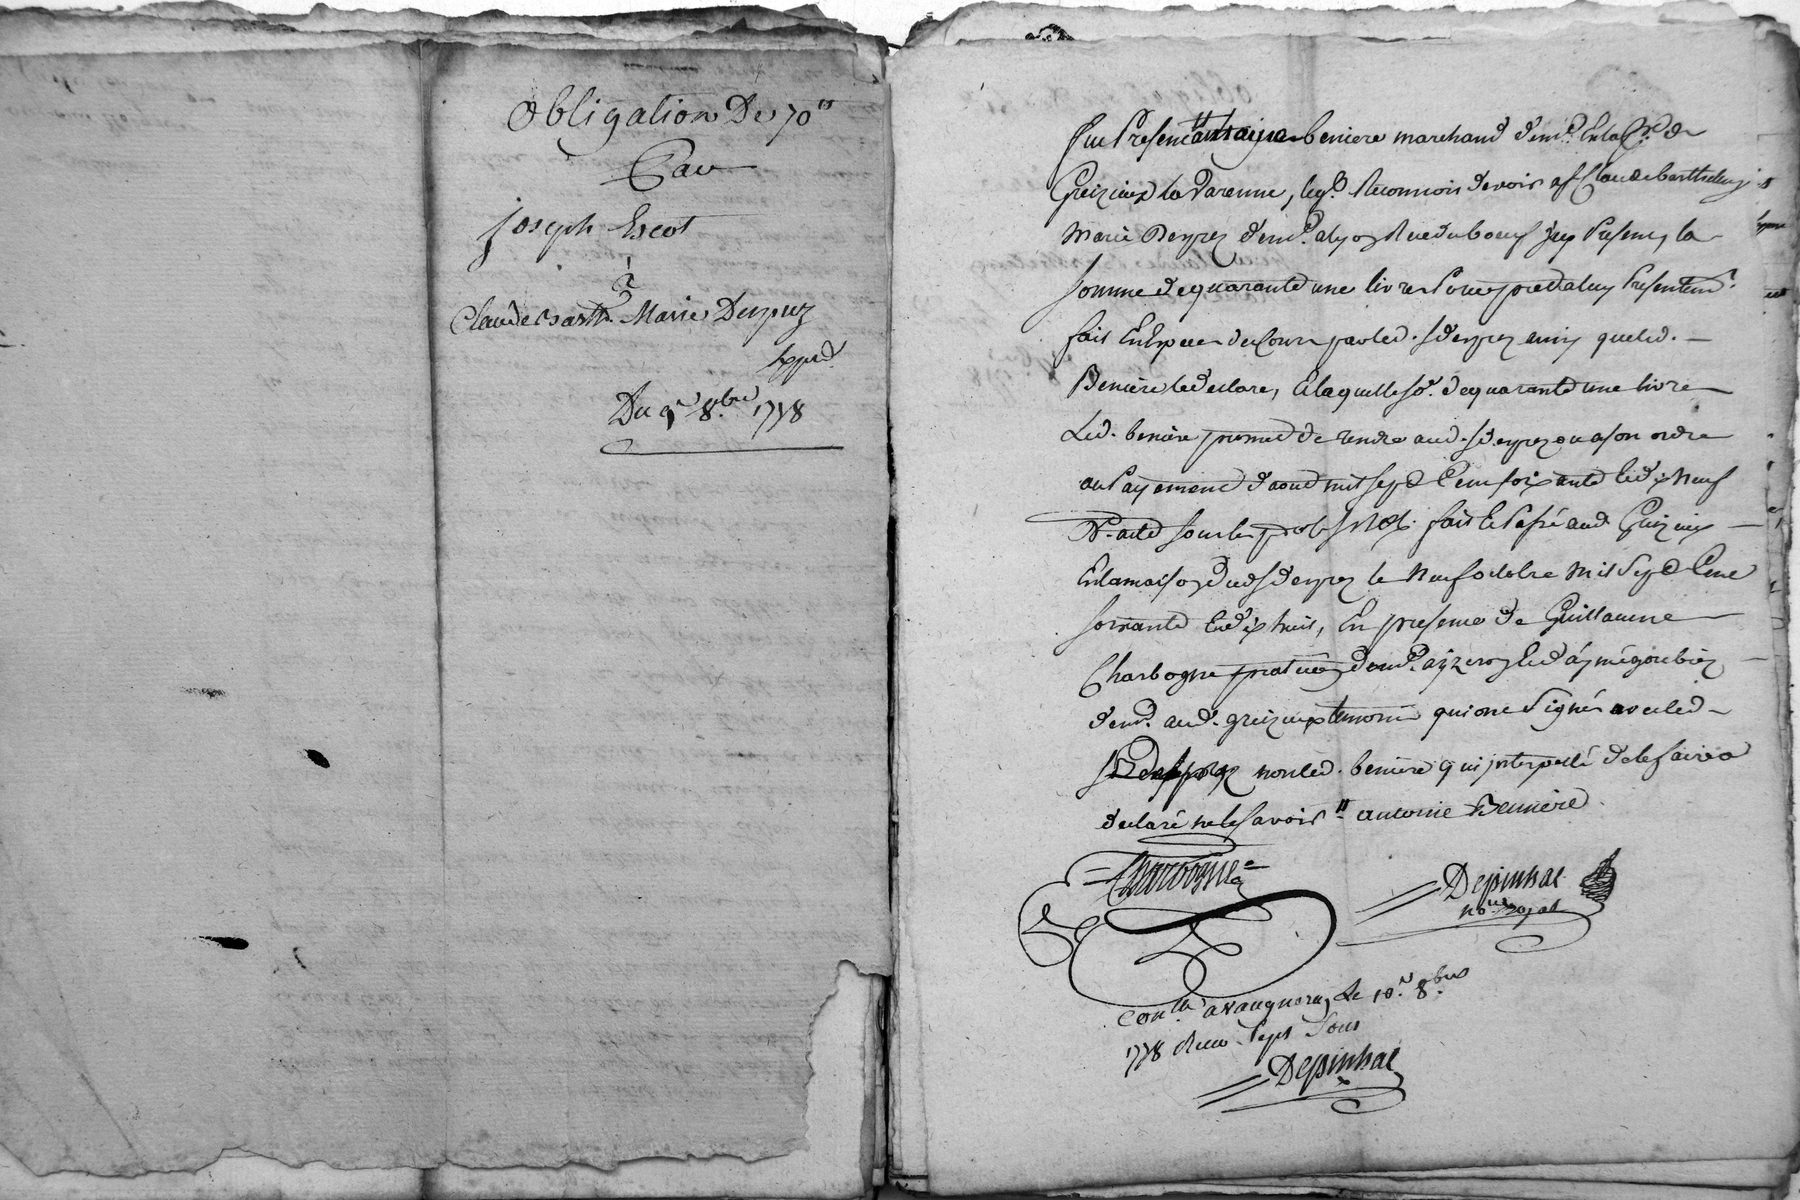 obligation De 70ᵗᵗ
Par
joseph Escot
à
Claude Barth. Marie Deyrez
Du 9 8.bre 1778
fut Present beniere marchand
Greizieux la Varenne, leq.l Reconnois devoir a Sr Claude barthelemy
Marie Deyrez demt. a lyon Rue du boeuf present, la
somme de quarante une livres Pour pret a luy Presentemt.
fait En Especes du Cours par led. Sr deyrez ainsy que led.
Beniere le declare, Et laquelle so.e de quarante une livre
Led. beniere promet de rendre aud. Sr deyrez ou a son ordre
au Payement d'aout mil sept Cent soixante et dix Neuf
fait Et Passé aud. Greizieux
En la maison dud. Sr deyrez le Neuf octobre Mil Sept Cent
soixante Et dix huit, En presence de Guillaume
Charbogne praticien demt.
demt. aud. greizieux temoins qui ont Signé avec led.
non led. beniere qui interpellé de le faire a
declaré ne le savoir " antoine Beniere
Charbogne
Depinhac
no.re royal
Con.lle a Vaugneray Le 10.e 8.bre
1778 Recu Sept Sous
Depinhac